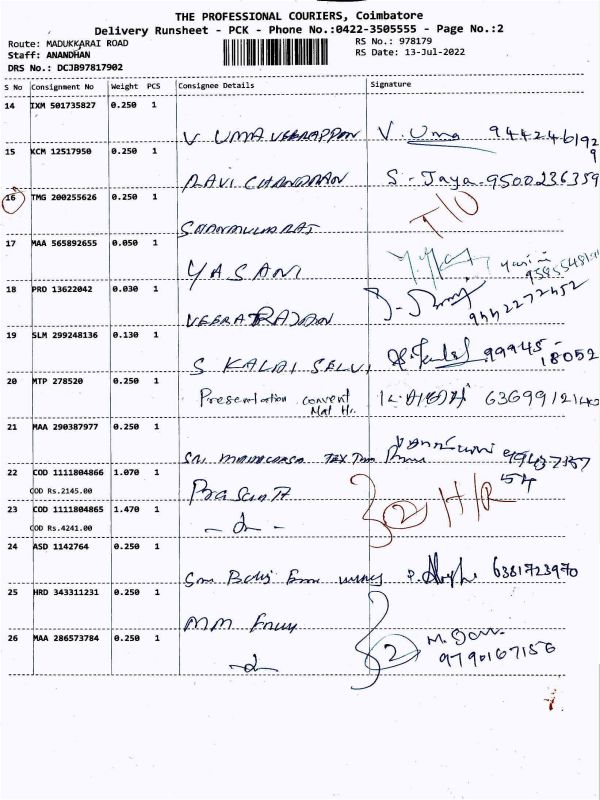 THE PROFESSIONAL COURIERS, Coimbatore
Delivery Runsheet - PCK - Phone No.:0422-3505555 - Page No.:2
Route: MADUKKARAI ROAD RS No.: 978179
Staff: ANANDHAN RS Date: 13-Jul-2022
DRS No.: DCJB97817902
S No Consignment No Weight PCS Consignee Details Signature
14 IXM 501735827 0.250 1
V UMA VEERAPPAN V. Uma 9442461929
15 KCM 12517950 0.250 1
RAVI CHANDRAN S - Jaya - 9500236359
16 TMG 200255626 0.250 1
SHANMUGARAJ
17 MAA 565892655 0.050 1
YASANI
18 PRO 13622042 0.030 1
VEERARAJAN 9442272452
19 SLM 299248136 0.130 1
S KALAI SELVI 99945-18052
20 MTP 278520 0.250 1
Presentation convent 6369912140
Mat Hr.
21 MAA 290387977 0.250 1
22 COD 1111804866 1.070 1
COD Rs.2145.00
23 COD 1111804865 1.470 1
2 H/R
COD Rs.4241.00
24 ASD 1142764 0.250 1
6381723970
25 HRD 343311231 0.250 1
MM
26 MAA 286573784 0.250 1
2 9790167156